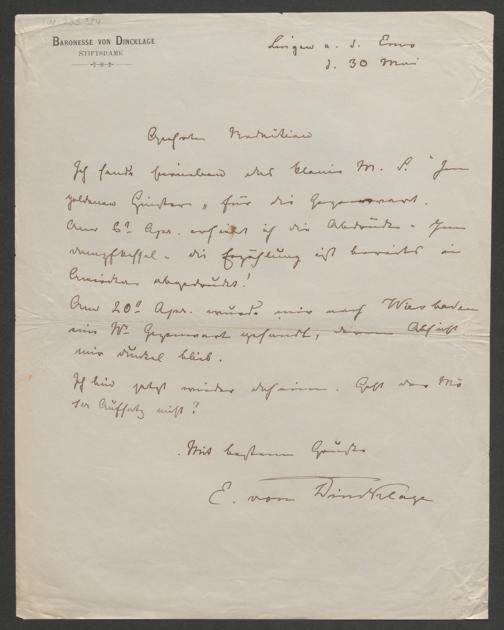 BARONESSE VON DINCKLAGE
STIFTSDAME
Lingen a. d. Ems
d. 30 Mai
Geehrte Redaktion
Ich sende beineben das kleine M. S. "Im
goldenen Ginster" für die Gegenwart.
Am 6t Apr. erhielt ich die Abdrücke "Im
Dampfkessel" die Erzählung ist bereits in
Amerika abgedruckt!
Am 20t Apr. wurde mir nach Wiesbaden
eine Nr Gegenwart gesandt, deren Absicht
mir dunkel blieb.
Ich bin jetzt wieder daheim. Geht der Mö
ser Aufsatz nicht?
Mit bestem Gruße
E. von Dincklage